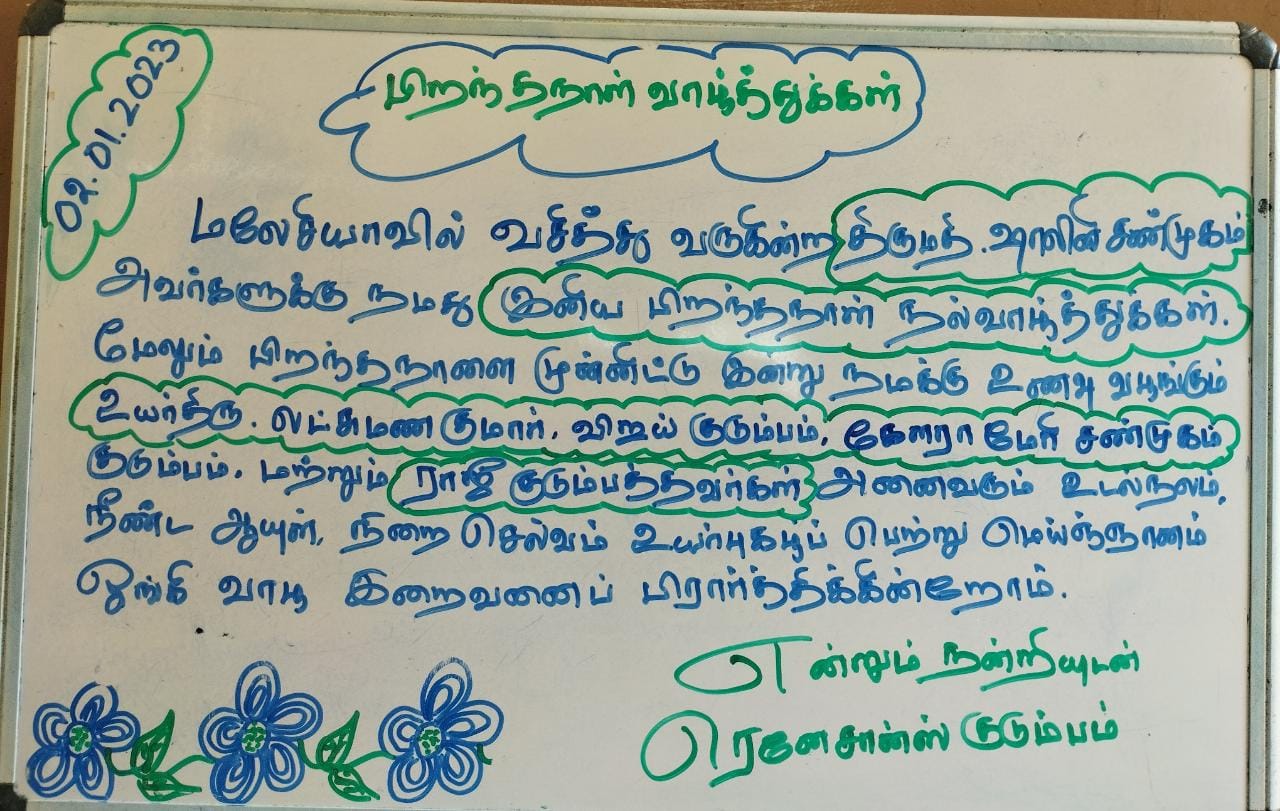 02.01.2023
பிறந்தநாள் வாழ்த்துக்கள்
மலேசியாவில் வசித்து வருகின்ற திருமதி. ஷாலினி சண்முகம்
அவர்களுக்கு நமது இனிய பிறந்தநாள் நல்வாழ்த்துக்கள்.
மேலும் பிறந்தநாளை முன்னிட்டு இன்று நமக்கு உணவு வழங்கும்
உயர்திரு. லட்சுமணகுமார், விஜய் குடும்பம், கேளரா மேரி சண்முகம்
குடும்பம், மற்றும் ராஜீ குடும்பத்தவர்கள் அனைவரும் உடல்நலம்,
நீண்ட ஆயுள், நிறை செல்வம் உயர்புகழ்ப் பெற்று மெய்ஞ்ஞானம்
ஓங்கி வாழ இறைவனைப் பிரார்த்திக்கின்றோம்.
என்றும் நன்றியுடன்
ரெனேசான்ஸ் குடும்பம்